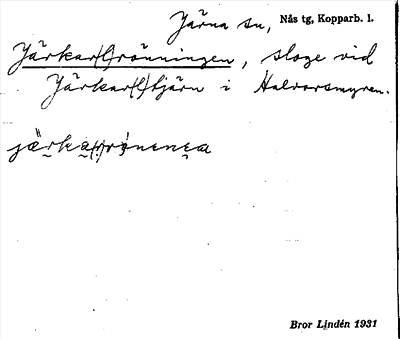 Järna sn, Nås tg, Kopparb. l.
Järkar(l)rönningen, sloge vid
Järkar(l)tjärn i Halvarsmyren.
Bror Lindén 1931